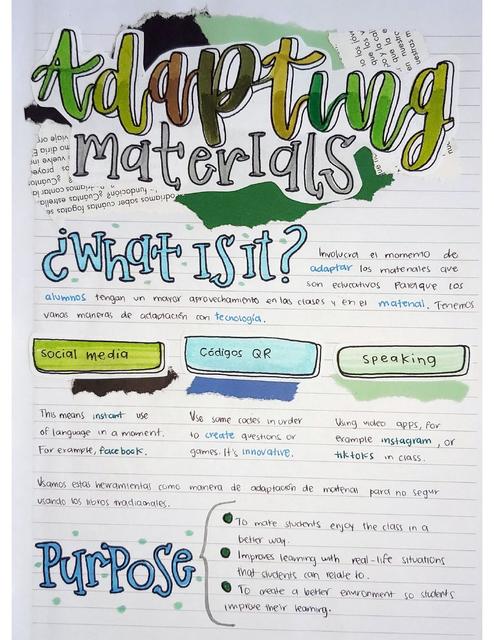 Adapting
materials
¿What IS it?
Involucra el momento de
adaptar los materiales que
son educativos para que los
alumnos tengan un mayor aprovechamiento en las clases y en el material. Tenemos
varias maneras de adaptación con tecnología.
social media
Códigos QR
speaking
This means instant use
of language in a moment.
For example, facebook.
Use some codes in order
to create questions or
games. It's innovative.
Using video apps, for
example instagram, or
tiktoks in class.
Usamos estas herramientas como manera de adaptación de material para no seguir
usando los libros tradicionales.
Purpose
To make students enjoy the class in a
better way.
Improves learning with real-life situations
that students can relate to.
To create a better environment so students
improve their learning.